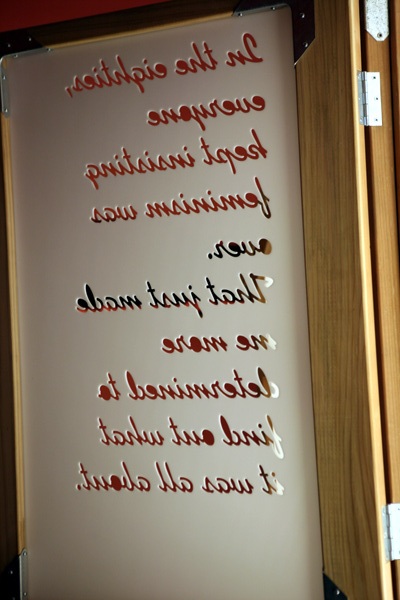 In the eighties,
everyone
kept insisting
feminism was
over.
That just made
me more
determined to
find out what
it was all about.